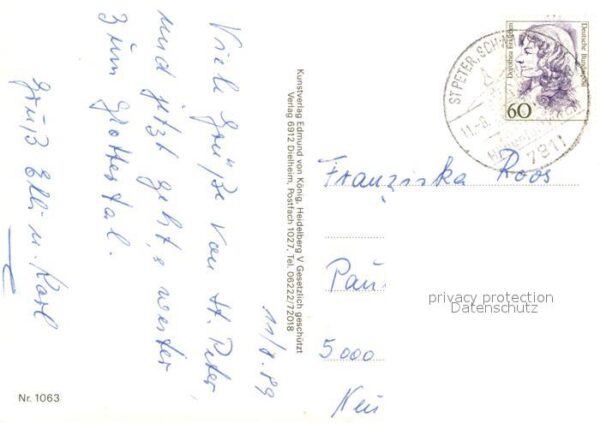 11/8.89
Viele Grüße von St. Peter
und jetzt geht,s weiter
zum Glottertal.
Gruß Elli u. Karl
Kunstverlag Edmund von König, Heidelberg V Gesetzlich geschützt
Verlag 6912 Dielheim, Postfach 1027, Tel. 06222/72018
Nr. 1063
ST.PETER, SCHW
7811
Dorothea Erxleben
Deutsche Bundespost
60
Franziska Roos
Pau
5000
privacy protection
Datenschutz